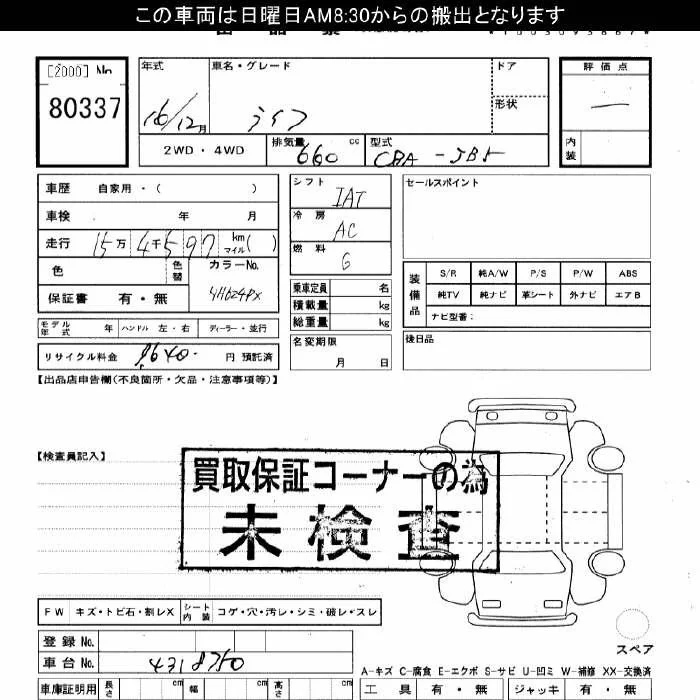 この車両は日曜日AM8:30からの搬出となります
[2000] No
80337
年式 車名・グレード ドア 評価点
16/12月 ライフ 形状 —
2WD・4WD 排気量 660 cc 型式 CBA-JB5 内装
車歴 自家用・( ) シフト IAT セールスポイント
車検 年 月 冷房 AC
走行 15万4千597 km マイル( ) 燃料 G
色 色替 カラーNo. YH624PX
保証書 有・無
乗車定員 名
積載量 kg
総重量 kg
装備品 S/R 純A/W P/S P/W ABS
純TV 純ナビ 革シート 外ナビ エアB
ナビ型番:
モデル年式 年 ハンドル 左・右 ディーラー・並行 名変期限 月 日 後日品
リサイクル料金 9640- 円 預託済
【出品店申告欄(不良箇所・欠品・注意事項等)】
【検査員記入】
買取保証コーナーの為
未検査
FW キズ・トビ石・割レX シート内装 コゲ・穴・汚レ・シミ・破レ・スレ
登録No.
車台No. 4318750
スペア
A-キズ C-腐食 E-エクボ S-サビ U-凹ミ W-補修 XX-交換済
車庫証明用 長さ cm 幅 cm 高さ cm 工具 有・無 ジャッキ 有・無